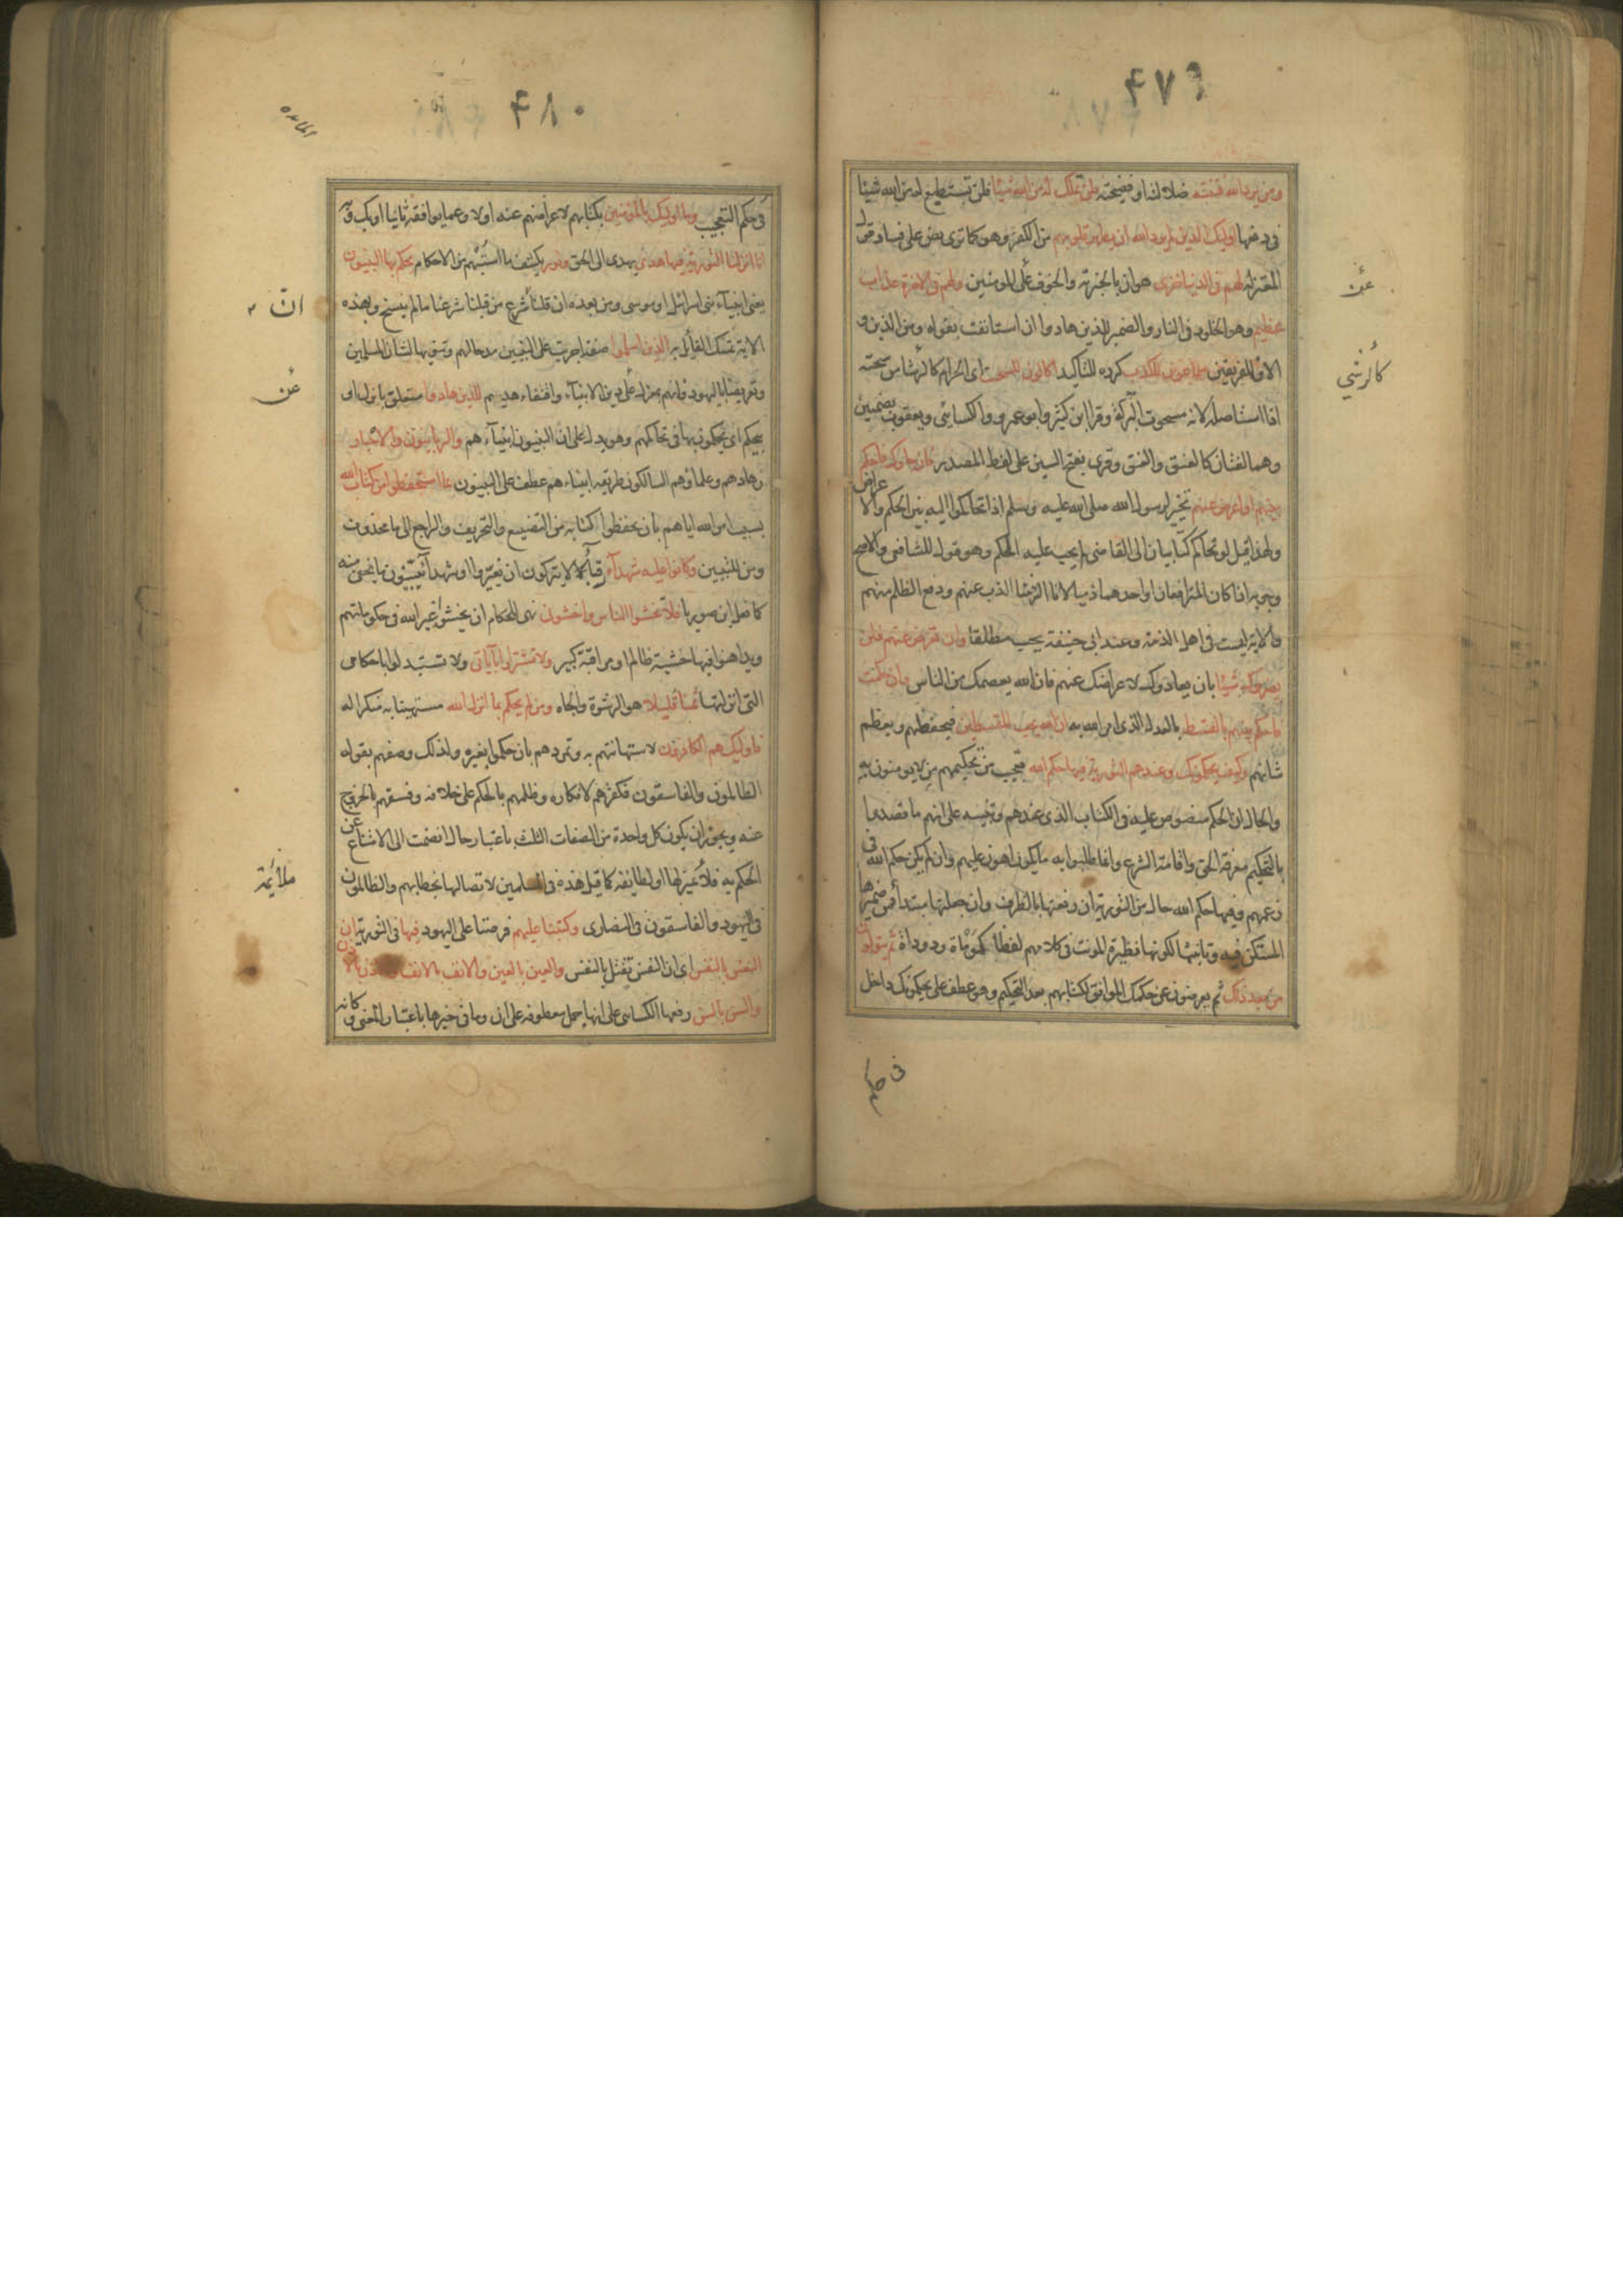 ٤٧٩
ومن يرد الله فتنته ضلالته او فضيحته فلن تملك له من الله شيئا فلن تستطيع له من الله شيئا
فى دفعها اولئك الذين لم يرد الله ان يطهر قلوبهم من الكفر وهو كما ترى نص على فساد قول
المعتزلة لهم فى الدنيا خزى هوان بالجزية والخوف عن المؤمنين ولهم فى الاخرة عذاب
عن
عظيم وهو الخلود فى النار والضمير للذين هادوا ان استانفت بقوله ومن الذين و
الا فللفريقين سماعون للكذب كرره للتأكيد اكالون للسحت اى الحرام كالرشا من سحته
كالرشى
اذا استاصله لانه مسحوت البركة وقرا ابن كثير وابو عمرو والكسائى ويعقوب بضمتين
وهما لغتان كالعنق والعنق وقرى بفتح السين على لفظ المصدر فان جاؤك فاحكم
بينهم او اعرض عنهم تخيير لرسول الله صلى الله عليه وسلم اذا تحاكموا اليه بين الحكم والاعراض
ولهذا قيل لو تحاكم كتابيان الى القاضى لم يجب عليه الحكم وهو قول للشافعى والاصح
وجوبه اذا كان المترافعان او احدهما ذميا لانا التزمنا الذب عنهم ودفع الظلم منهم
والاية ليست فى اهل الذمة وعند ابى حنيفة يجب مطلقا وان تعرض عنهم فلن
يضروك شيئا بان يعادوك لاعراضك عنهم فان الله يعصمك من الناس وان حكمت
فاحكم بينهم بالقسط بالعدل الذى امر الله به ان الله يحب المقسطين فيحفظهم ويعظم
شانهم وكيف يحكمونك وعندهم التورية فيها حكم الله تعجيب من تحكيمهم من لا يومنون به
والحال ان الحكم منصوص عليه فى الكتاب الذى عندهم وتنبيه على انهم ما قصدوا
بالتحكيم معرفة الحق واقامة الشرع وانما طلبوا به ما يكون اهون عليهم وان لم يكن حكم الله فى
زعمهم وفيها حكم الله حال من التورية ان رفعتها بالظرف وان جعلتها مبتدأ فمن ضميرها
المستكن فيه وتانيثها لكونها نظيرة المونث فى كلامهم لفظا كموماة ودوداة ثم يتولون
من بعد ذلك ثم يعرضون عن حكمك الموافق لكتابهم بعد التحكيم وهو عطف على يحكمونك داخل
فى حكم
٤٨٠
المائده
فى حكم التعجيب وما اولئك بالمؤمنين بكتابهم لاعراضهم عنه اولا وعما يوافقه ثانيا او بك وبه
انا انزلنا التورية فيها هدى يهدى الى الحق ونور يكشف ما استبهم من الاحكام يحكم بها النبيون
يعنى انبياء بنى اسرائل او موسى ومن بعده ان قلنا شرع من قبلنا شرعنا ما لم ينسخ وبهذه
ان
الاية تمسك القائل به الذين اسلموا صفة اجريت على النبيين مدحا لهم وتنويها لشان المسلمين
وتعريضا باليهود وانهم بمعزل عن دين الانبياء واقتفاء هديهم للذين هادوا متعلق بانزل او
عن
بيحكم اى يحكمون بها فى تحاكمهم وهو يدل على ان النبيون انبياءهم والربانيون والاحبار
زهادهم وعلماؤهم السالكون طريقة انبيائهم عطف على النبيون بما استحفظوا من كتاب الله
بسبب امر الله اياهم بان يحفظوا كتابه من التضييع والتحريف والراجع الى ما محذوف
ومن للتبيين وكانوا عليه شهداء رقباء لا يتركون ان يغيروا او شهداء يبينون ما يخفى منه
كما فعل ابن صوريا فلا تخشوا الناس واخشون نهى للحكام ان يخشوا غير الله فى حكوماتهم
ويداهنوا فيها خشية ظالم او مراقبة كبير ولا تشتروا باياتى ولا تستبدلوا باحكامى
التى انزلتها ثمنا قليلا هو الرشوة والجاه ومن لم يحكم بما انزل الله مستهينا به منكرا له
فاولئك هم الكافرون لاستهانتهم به وتمردهم بان حكموا بغيره ولذلك وصفهم بقوله
الظالمون والفاسقون فكفرهم لانكاره وظلمهم بالحكم على خلافه وفسقهم بالخروج
عنه ويجوز ان يكون كل واحدة من الصفات الثلث باعتبار حال انضمت الى الامتناع عن
الحكم به ملائمة لها او لطايفة كما قيل هذه فى المسلمين لاتصالها بخطابهم والظالمون
ملائمة
فى اليهود والفاسقون فى النصارى وكتبنا عليهم فرضنا على اليهود فيها فى التورية ان
النفس بالنفس اى ان النفس تقتل بالنفس والعين بالعين والانف بالانف والاذن بالاذن
والسن بالسن رفعها الكسائى على انها جمل معطوفة على ان وما فى خبرها باعتبار المعنى وكانه